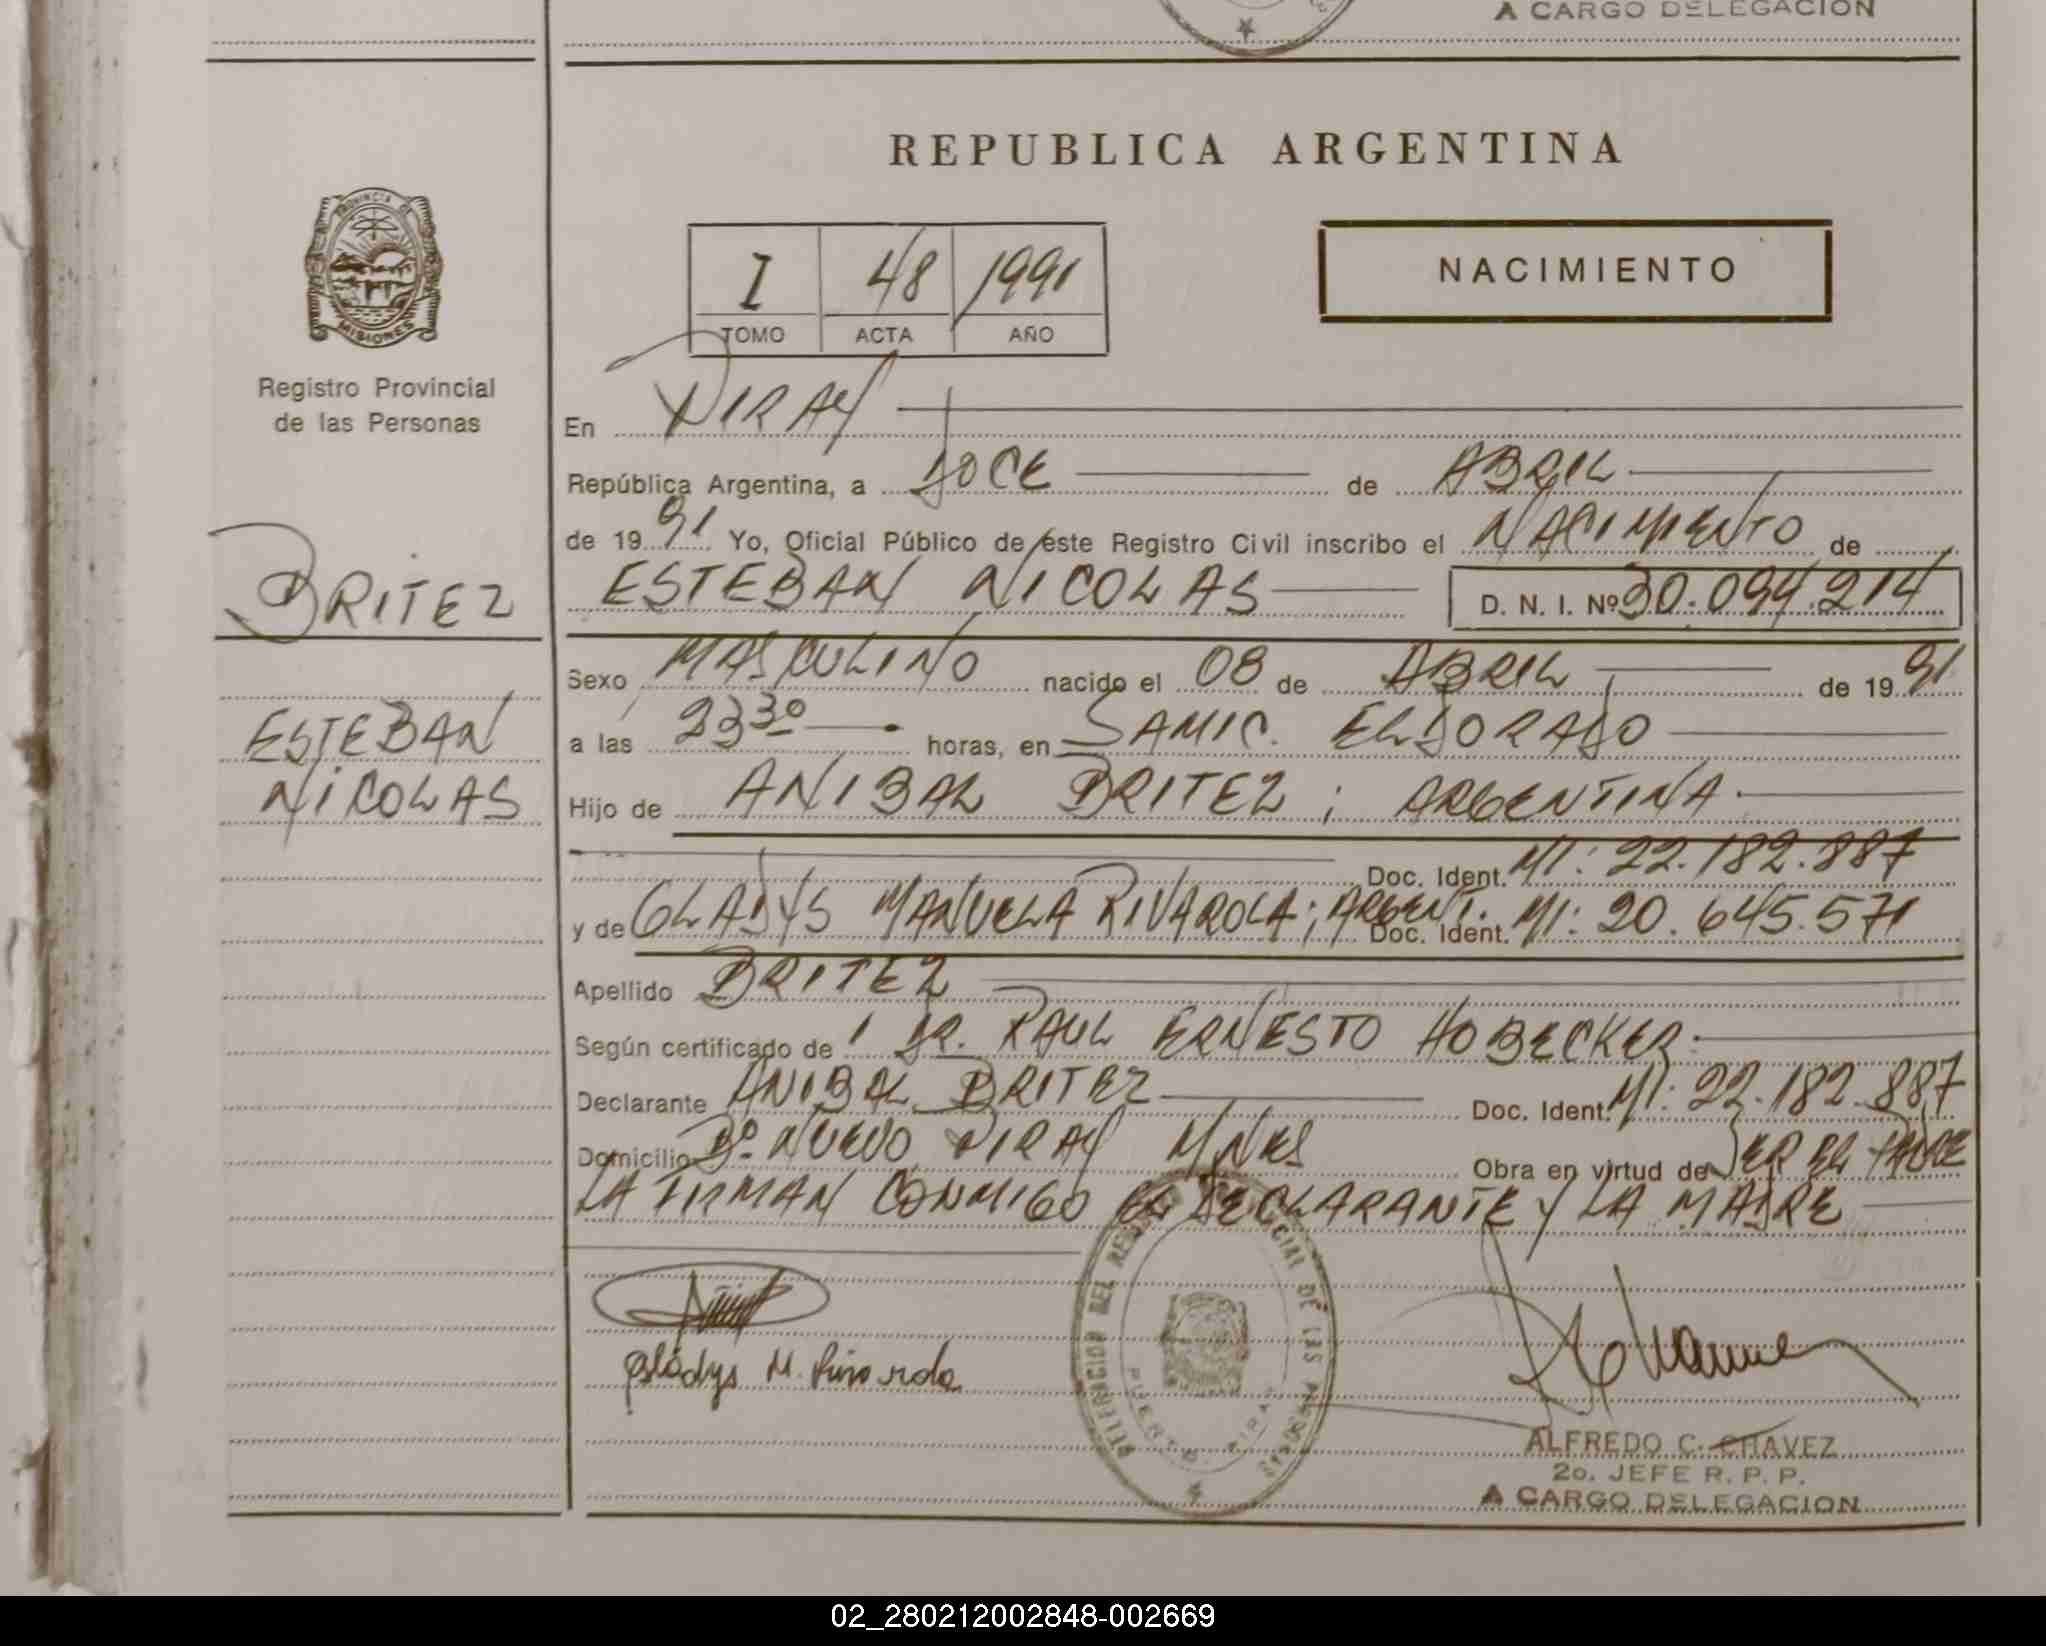 A CARGO DELEGACION
REPUBLICA ARGENTINA
PROVINCIA DE
MISIONES
Registro Provincial
de las Personas
I 48 1991
TOMO ACTA AÑO
NACIMIENTO
En PIRAY
República Argentina, a DOCE de ABRIL
de 1991 Yo, Oficial Público de este Registro Civil inscribo el NACIMIENTO de
BRITEZ
ESTEBAN NICOLAS D. N. I. Nº 30.094.214
Sexo MASCULINO nacido el 08 de ABRIL de 1991
ESTEBAN
NICOLAS
a las 23 30 horas, en SAMIC. ELDORADO
Hijo de ANIBAL BRITEZ; ARGENTINA
Doc. Ident. MI: 22.182.887
y de GLADYS MANUELA RIVAROLA; ARGENT. Doc. Ident. MI: 20.645.571
Apellido BRITEZ
Según certificado de DR. RAUL ERNESTO HOBECKER.
Declarante ANIBAL BRITEZ Doc. Ident. MI: 22.182.887
Domicilio Bº NUEVO PIRAY MNES Obra en virtud de SER EL PADRE
LA FIRMAN CONMIGO EL DECLARANTE Y LA MADRE
Gladys M. Rivarola
DELEGACION DEL REGISTRO PROVINCIAL DE LAS PERSONAS
PUERTO PIRAY
ALFREDO C. CHAVEZ
2o. JEFE R. P. P.
A CARGO DELEGACION
02_280212002848-002669